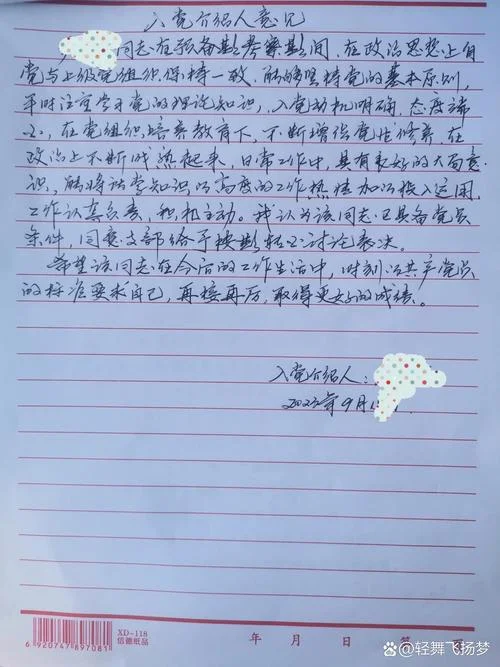 入党介绍人意见
同志在预备期考察期间，在政治思想上自
党与上级党组织保持一致，能够坚持党的基本原则，
平时注重学习党的理论知识，入党动机明确，态度端
正，在党组织培养教育下，不断增强党性修养，在
政治上不断成熟起来，日常工作中，具有良好的大局意
识，能将所学知识，以高度的工作热情加以投入运用，
工作认真负责，积极主动。我认为该同志已具备党员
条件，同意支部给予按期转正讨论表决。
希望该同志在今后的工作生活中，时刻以共产党员
的标准要求自己，再接再厉，取得更好的成绩。
入党介绍人：
2023年9月1
XD-118
信德纸品
6 920747 897081
年 月 日 第 页
@轻舞飞扬梦